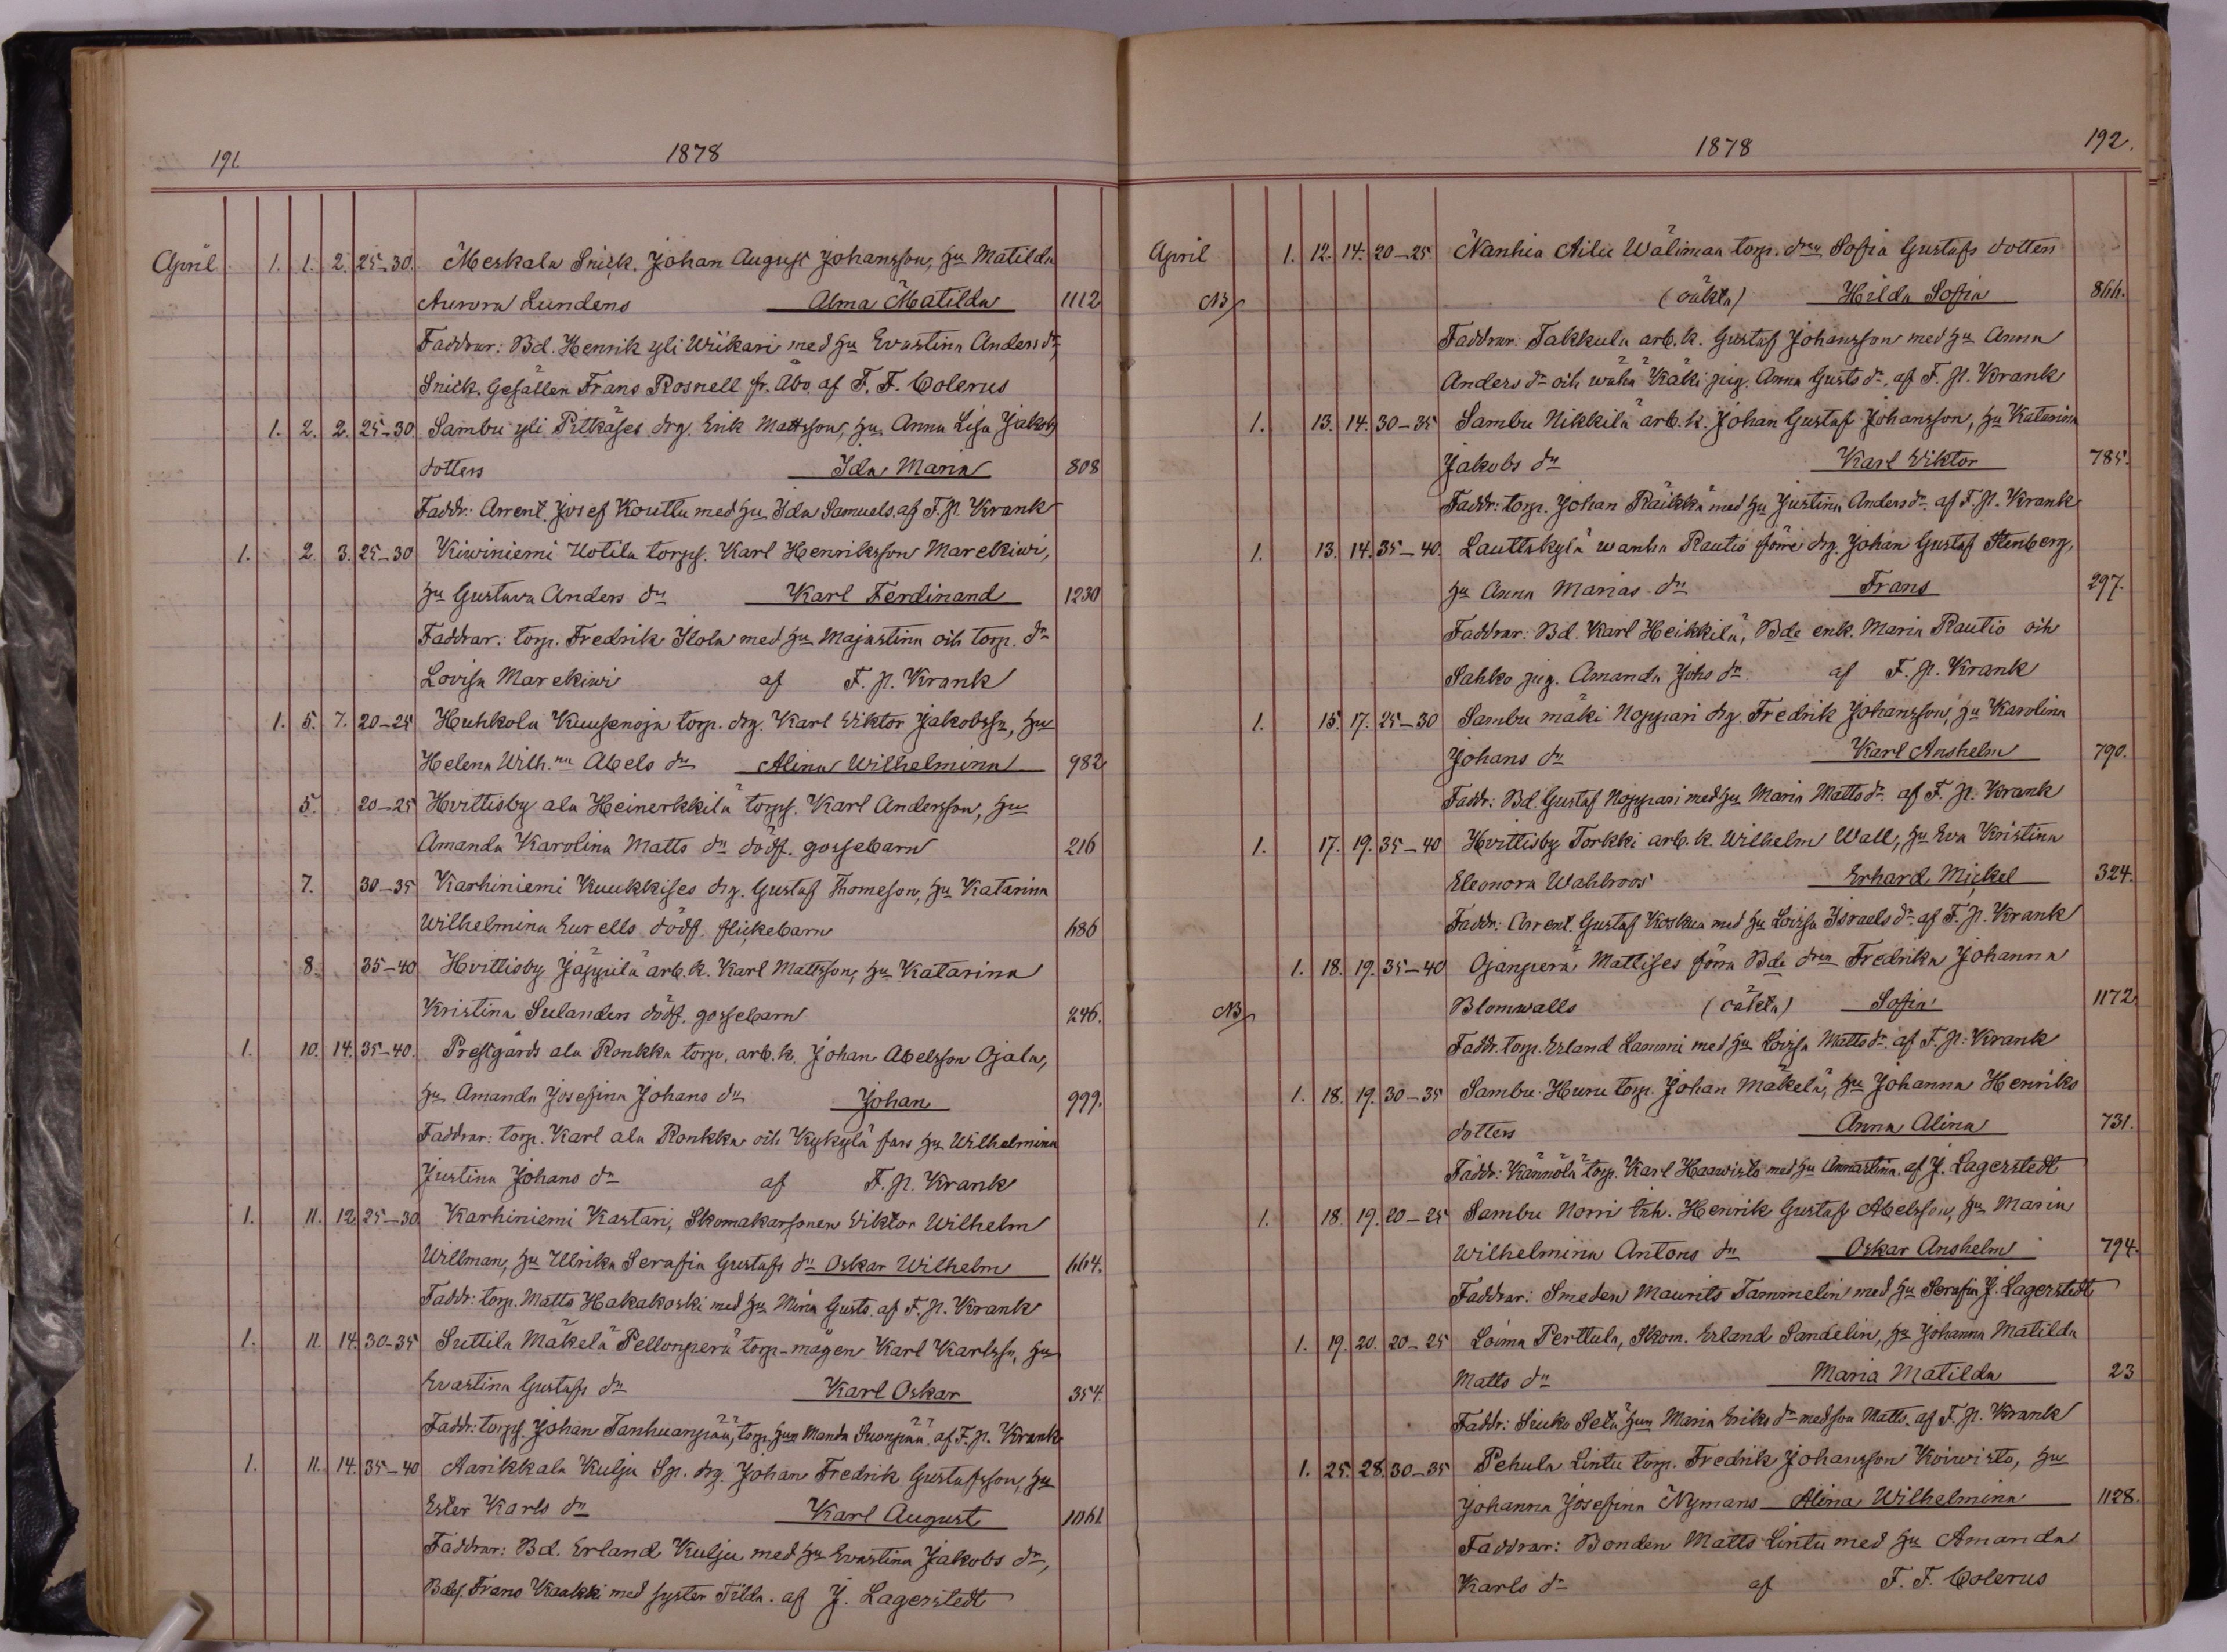 191.
1878
April 1. 1. 2. 25-30. Meskala Snick. Johan August Johansson, hu Matilda
Aurora Lundens Alma Matilda 1112
Faddrar: Bd. Henrik yli Wiikari med hu Evastina Anders dr,
Snick. Gesällen Frans Rosnell fr. Åbo. af F. F. Colerus
1. 2. 2. 25-30 Sambu yli Pitkäjes drg. Erik Mattsson, hu Anna Lisa Jakobs
dotters Ida Maria 808
Faddr: Arrent. Josef Kouttu med hu Ida Samuels. af F. H. Krank
1. 2. 3. 25-30 Kiwiniemi Uotila torpf. Karl Henriksson Marekiwi,
hu Gustava Anders dr Karl Ferdinand 1230
Faddrar: torp. Fredrik Ilola med hu Majastina och torp. dr
Lovisa Marekiwi af F. H. Krank
1. 5. 7. 20-25 Huhkola Kuusenoja torp. drg. Karl Viktor Jakobssn, hu
Helena Wilh.na Abels dr Alina Wilhelmina 982
5. 20-25 Hvittisby ala Heinerkkilä torpf. Karl Andersson, hu
Amanda Karolina Matts dr dödf. gossebarn 216
7. 30-35 Karhiniemi Kuukkises drg. Gustaf Thomeson, hu Katarina
Wilhelmina Eurells dödf. flickebarn 686
8. 35-40 Hvittisby Jäppilä arb. k. Karl Mattsson, hu Katarina
Kristina Sulanders dödf. gossebarn 246.
1. 10. 14. 35-40. Prestgårds ala Ronkka torp. arb. k. Johan Abelsson Ojala,
hu Amanda Josefina Johans dr Johan 999.
Faddrar: torp. Karl ala Ronkka och Kykylä fars hu Wilhelmina
Justina Johans dr af F. H. Krank
1. 11. 12 25-30 Karhiniemi Kastari, Skomakarsonen Viktor Wilhelm
Willman, hu Ulrika Serafia Gustafs dr Oskar Wilhelm 664.
Faddr: torp. Matts Hakakoski med hu Mina Gusts. af F. H. Krank
1. 11. 14. 30-35 Suttila Mäkelä Pellonperä torp-mågen Karl Karlssn, hu
Evastina Gustafs dr Karl Oskar 354.
Faddr: torpf. Johan Tanhuanpää, torp. hun Manda Suonpää. af F. H. Krank
1. 11. 14. 35-40 Aarikkala Kulju Sp. drg. Johan Fredrik Gustafsson, hu
Ester Karls dr Karl August 1061
Faddrar: Bd. Erland Kulju med hu Evastina Jakobs dr,
Bdes. Frans Kaukki med syster Tilda. af J. Lagerstedt
1878
192.
April 1. 12. 14. 20-25 Nanhia Ailii Wäliman torp. dren Sofia Gustafs dotters
NB (oäkta) Hilda Sofia 866.
Faddrar: Takkula arb. k. Gustaf Johansson med hu Anna
Anders dr och wähä Käki pig. Anna Gusts dr. af F. H. Krank
1. 13. 14. 30-35 Sambu Nikkilä arb. k. Johan Gustaf Johansson, hu Katarina
Jakobs dr Karl Viktor 785.
Faddr: torp. Johan Räikkä med hu Justina Anders dr. af F. H. Krank
1. 13. 14. 35-40. Lauttakylä wanha Rautio förre drg. Johan Gustaf Stenberg,
hu Anna Marias dr Frans 297.
Faddrar: Bd. Karl Heikkilä, Bde enk. Maria Rautio och
Sahko pig. Amanda Johs dr. af F. H. Krank
1. 15. 17. 25-30 Sambu mäki Noppari drg. Fredrik Johansson, hu Karolina
Johans dr Karl Anshelm 790.
Faddr: Bd. Gustaf Noppari med hu Maria Matts dr. af F. H. Krank
1. 17. 19. 35-40 Hvittisby Torkki arb. k. Wilhelm Wall, hu Eva Kristina
Eleonora Wahlroos Erhard Mickel 324.
Faddr: Arrent. Gustaf Koskua med hu Lovisa Israels dr. af F. H. Krank
1. 18. 19. 35-40 Ojanperä Mattises förra Bde dren Fredrika Johanna
NB Blomwalls (oäkta) Sofia 1172
Faddr. torp. Erland Lammi med hu Lovisa Matts dr. af F. H. Krank
1. 18. 19. 30-35 Sambu Huru torp. Johan Mäkelä, hu Johanna Henriks
dotters Anna Alina 731.
Faddr: Kännölä torp. Karl Haawisto med hu Annastina. af J. Lagerstedt
1. 18. 19. 20-25 Sambu Norri inh. Henrik Gustaf Abelsson, hu Maria
Wilhelmina Antons dr Oskar Anshelm 794.
Faddrar: Smeden Maurits Tammelin med hu Serafia J. Lagerstedt
1. 19. 20. 20-25 Loima Perttula, Skom. Erland Sandelin, hu Johanna Matilda
Matts dr Maria Matilda 23
Faddr: Siuko Setä hun Maria Eriks dr med son Matts. af F. H. Krank
1. 25. 28. 30-35 Pehula Lintu torp. Fredrik Johansson Koiwisto, hu
Johanna Josefina Nymans Alina Wilhelmina 1128.
Faddrar: Bonden Matts Lintu med hu Amanda
Karls dr af F. F. Colerus